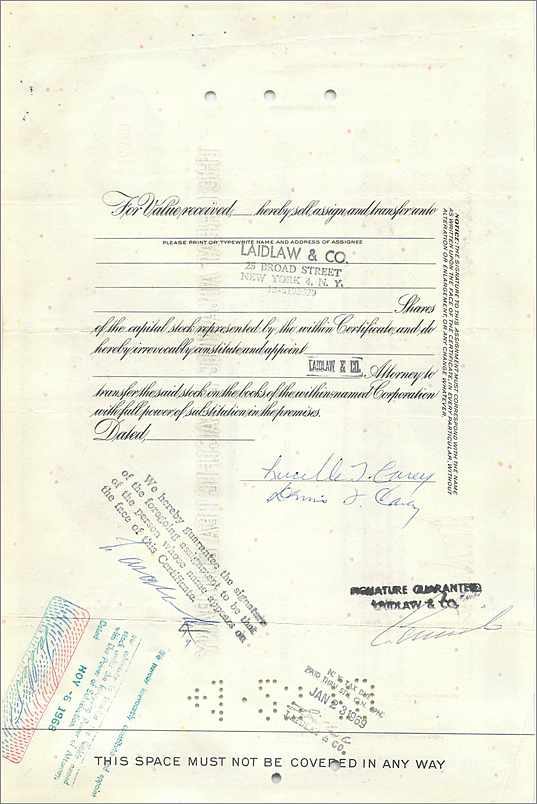 For Value received, hereby sell, assign, and transfer unto
PLEASE PRINT OR TYPEWRITE NAME AND ADDRESS OF ASSIGNEE
LAIDLAW & CO.
25 BROAD STREET
NEW YORK 4, N. Y.
Shares
of the capital stock represented by the within Certificate, and do
hereby irrevocably constitute and appoint
LAIDLAW & CO. Attorney to
transfer the said stock on the books of the within-named Corporation
with full power of substitution in the premises.
Dated,
NOTICE: THE SIGNATURE TO THIS ASSIGNMENT MUST CORRESPOND WITH THE NAME
AS WRITTEN UPON THE FACE OF THE CERTIFICATE, IN EVERY PARTICULAR, WITHOUT
ALTERATION OR ENLARGEMENT, OR ANY CHANGE WHATEVER.
Lucille T. Carey
Dennis J. Carey
We hereby guarantee the signature
of the foregoing assignment to be that
of the person whose name appears on
the face of this Certificate.
SIGNATURE GUARANTEED
LAIDLAW & CO.
We hereby irrevocably constitute and appoint
Dated NOV -6 1968
N. Y. TAX
PAID THRU STK. CLN. CORP.
JAN 23 1969
LAIDLAW & CO.
THIS SPACE MUST NOT BE COVERED IN ANY WAY